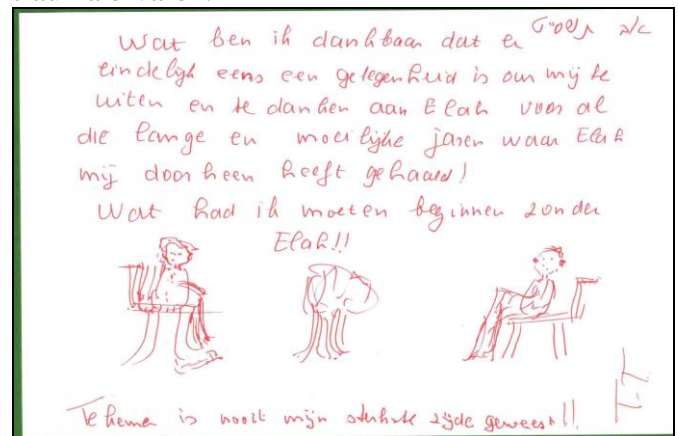 Wat ben ik dankbaar dat er
eindelijk eens een gelegenheid is om mij te
uiten en te danken aan Elah voor al
die lange en moeilijke jaren waar Elah
mij doorheen heeft gehaald!
Wat had ik moeten beginnen zonder
Elah!!
Tekenen is nooit mijn sterkste zijde geweest!!